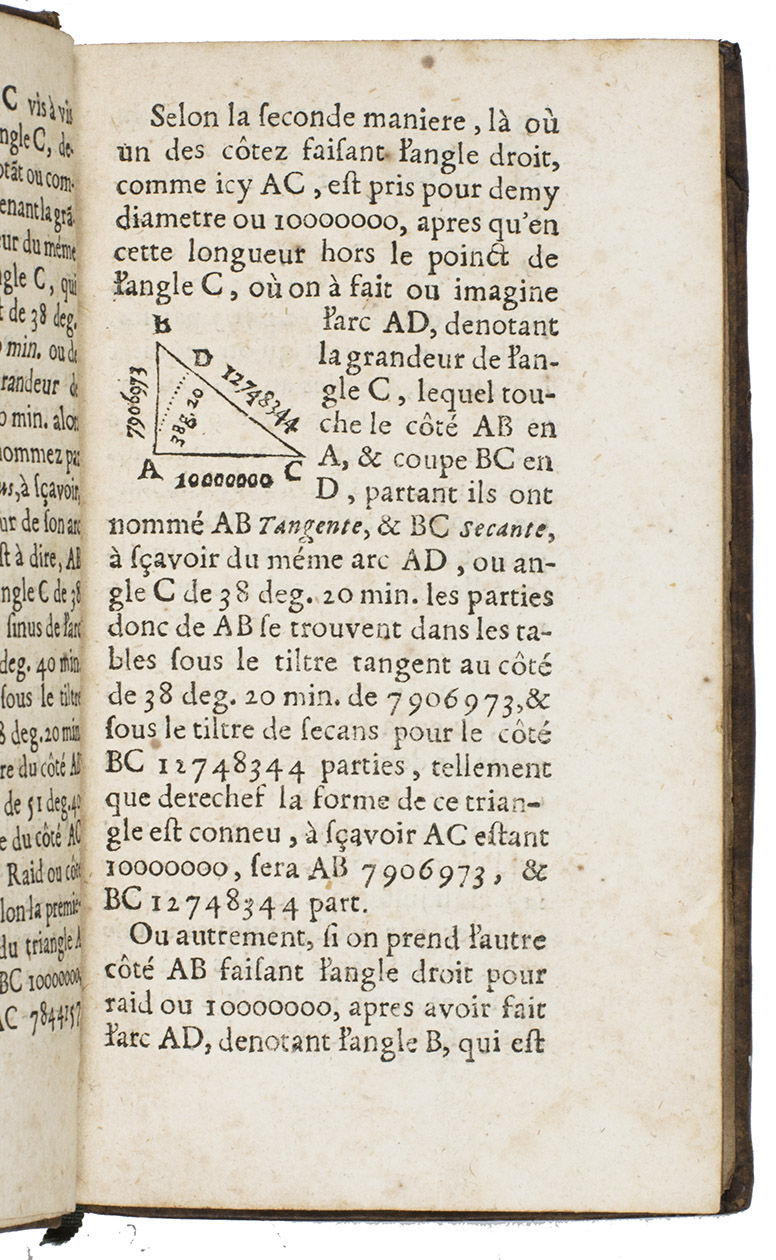 C vis à vis
ngle C, de-
otãt ou com-
enant la grã-
ur du méme
gle C, qui
t de 38 deg.
min. ou de
randeur de
o min. alor
nommez pa
us, à ſçavoir,
ur de ſon arc
ſt à dire, AB
ngle C de 38
ſinus de l'arc
deg. 40 min.
ſous le tiltre
8 deg. 20 min.
re du côté AB
de 51 deg. 40
e du côté AC
Raid ou côté
lon la premie-
du triangle A
BC 10000000,
AC 7844157
Selon la ſeconde maniere, là où
un des côtez faiſant l'angle droit,
comme icy AC, eſt pris pour demy
diametre ou 10000000, apres qu'en
cette longueur hors le poinct de
l'angle C, où on à fait ou imagine
l'arc AD, denotant
la grandeur de l'an-
gle C, lequel tou-
che le côté AB en
A, & coupe BC en
D, partant ils ont
B
D
12748344
7906973
38 g. 20
A
10000000
C
nommé AB Tangente, & BC Secante,
à ſçavoir du méme arc AD, ou an-
gle C de 38 deg. 20 min. les parties
donc de AB ſe trouvent dans les ta-
bles ſous le tiltre tangent au côté
de 38 deg. 20 min. de 7906973, &
ſous le tiltre de ſecans pour le côté
BC 12748344 parties, tellement
que derechef la forme de ce trian-
gle eſt conneu, à ſçavoir AC eſtant
10000000, ſera AB 7906973, &
BC 12748344 part.
Ou autrement, ſi on prend l'autre
côté AB faiſant l'angle droit pour
raid ou 10000000, apres avoir fait
l'arc AD, denotant l'angle B, qui eſt